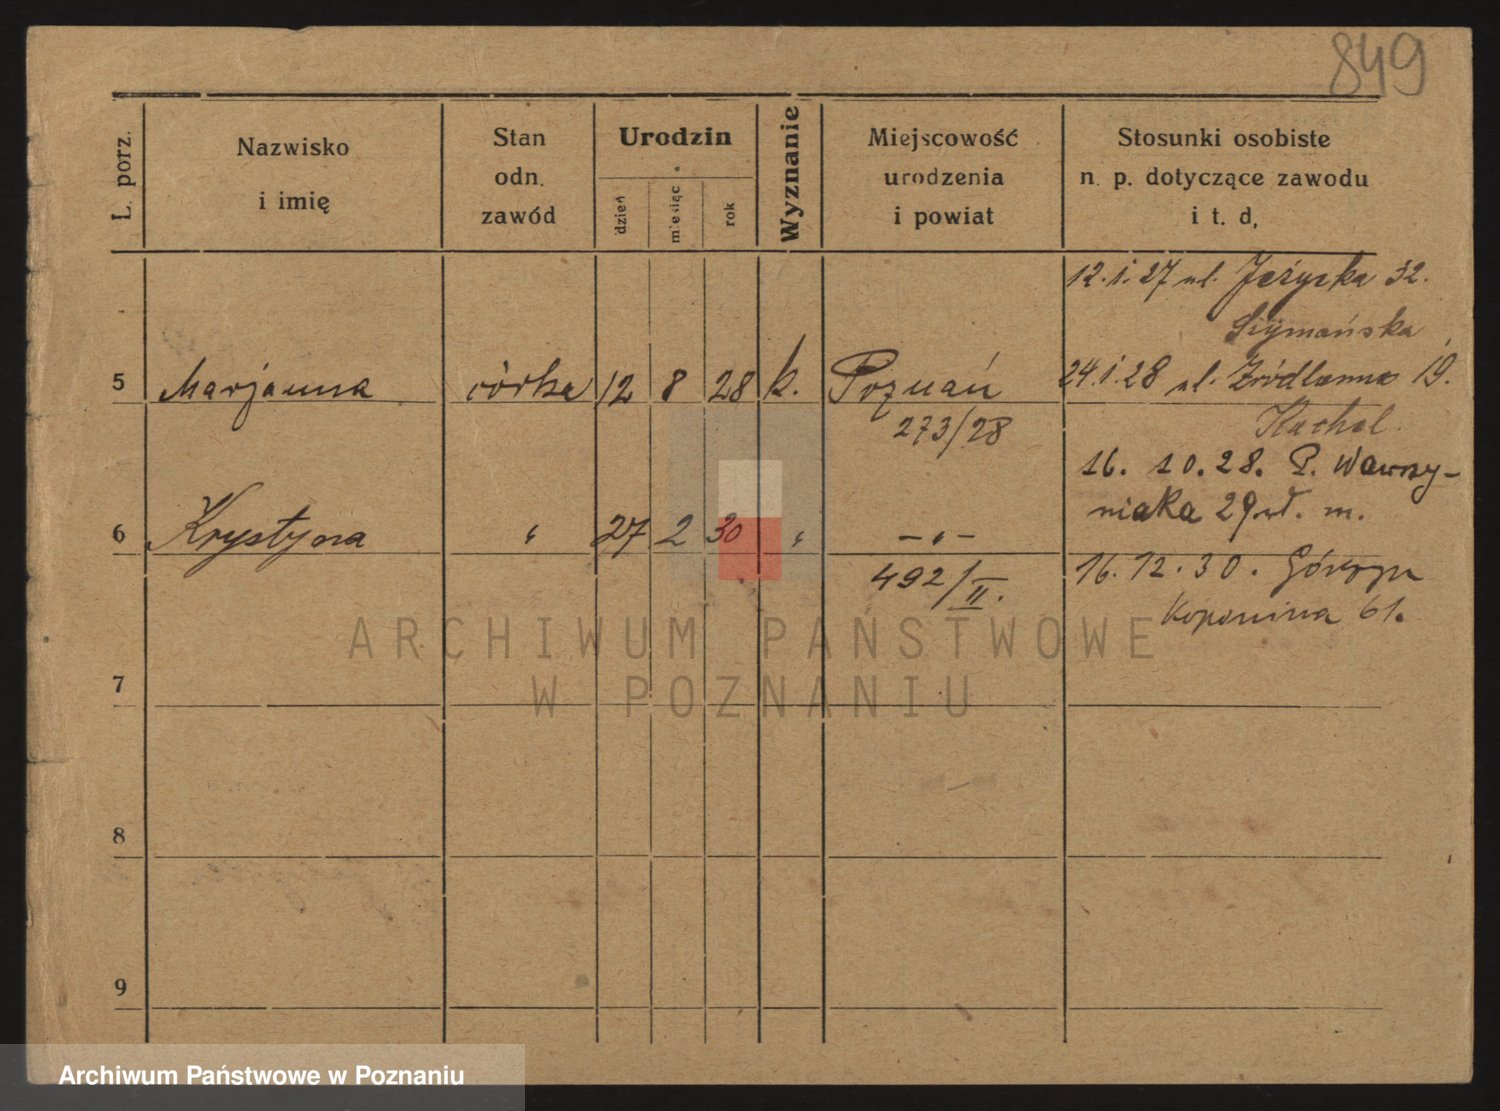 849
L. porz.
Nazwisko
i imię
Stan
odn.
zawód
Urodzin
dzień
miesiąc
rok
Wyznanie
Miejscowość
urodzenia
i powiat
Stosunki osobiste
n. p. dotyczące zawodu
i t. d,
12. i. 27 ul. Jeżycka 32.
Szymańska
5 Marjanna córka 12 8 28 k. Poznań
24. i. 28 ul. Źródlanna 19.
273/28
Kachel.
16. 10. 28. P. Wawrzy-
niaka 29 wł. m.
6 Krystyna " 27 2 30 " — " —
492/II.
16. 12. 30. Górczyn
Kopanina 61.
ARCHIWUM PAŃSTWOWE
W POZNANIU
7
8
9
Archiwum Państwowe w Poznaniu